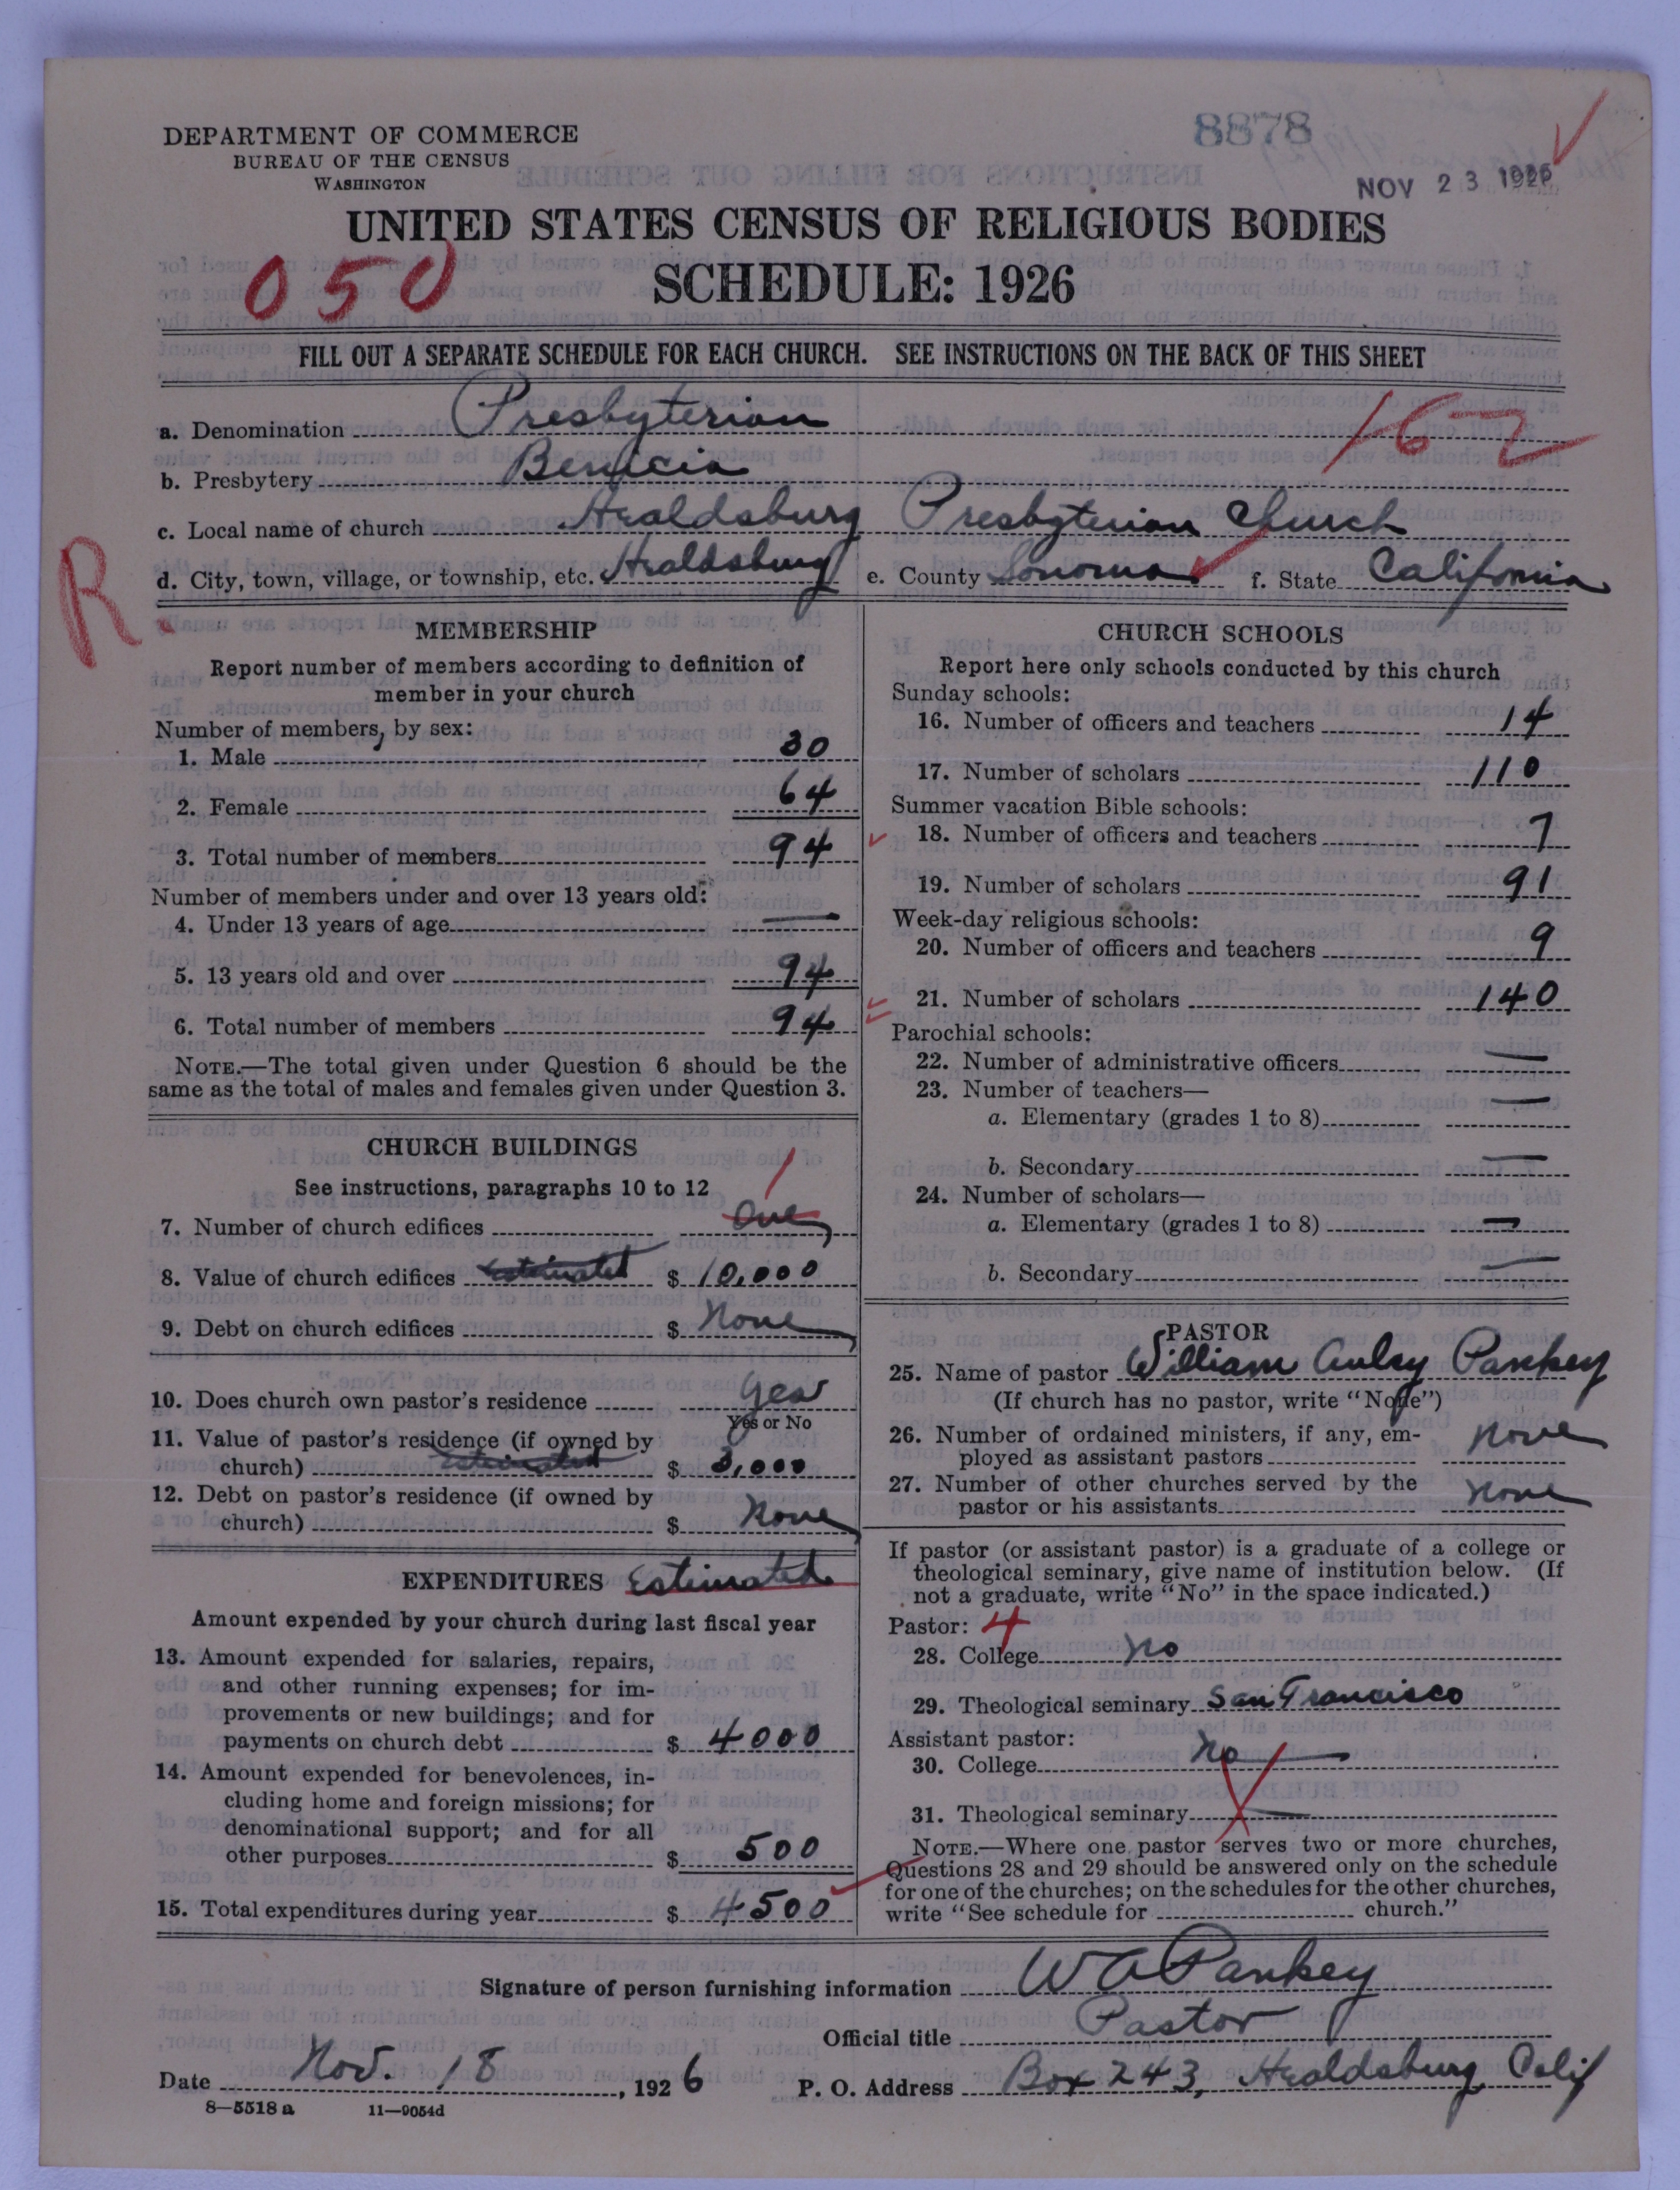 8878
DEPARTMENT OF COMMERCE
BUREAU OF THE CENSUS
WASHINGTON
NOV 23 1926
UNITED STATES CENSUS OF RELIGIOUS BODIES
050
SCHEDULE: 1926
FILL OUT A SEPARATE SCHEDULE FOR EACH CHURCH. SEE INSTRUCTIONS ON THE BACK OF THIS SHEET
a. Denomination Presbyterian
162
b. Presbytery Benicia
c. Local name of church Healdsburg Presbyterian Church
R
d. City, town, village, or township, etc. Healdsburg e. County Sonoma f. State California
MEMBERSHIP
Report number of members according to definition of
member in your church
Number of members, by sex:
1. Male 30
2. Female 64
3. Total number of members 94
Number of members under and over 13 years old:
4. Under 13 years of age —
5. 13 years old and over 94
6. Total number of members 94
NOTE.—The total given under Question 6 should be the
same as the total of males and females given under Question 3.
CHURCH BUILDINGS
See instructions, paragraphs 10 to 12
1
7. Number of church edifices One
8. Value of church edifices Estimated $ 10,000
9. Debt on church edifices $ None
10. Does church own pastor's residence Yes
Yes or No
11. Value of pastor's residence (if owned by
church) Estimated $ 3,000
12. Debt on pastor's residence (if owned by
church) $ None
EXPENDITURES Estimated
Amount expended by your church during last fiscal year
13. Amount expended for salaries, repairs,
and other running expenses; for im-
provements or new buildings; and for
payments on church debt $ 4000
14. Amount expended for benevolences, in-
cluding home and foreign missions; for
denominational support; and for all
other purposes $ 500
15. Total expenditures during year $ 4500
CHURCH SCHOOLS
Report here only schools conducted by this church
Sunday schools:
16. Number of officers and teachers 14
17. Number of scholars 110
Summer vacation Bible schools:
18. Number of officers and teachers 7
19. Number of scholars 91
Week-day religious schools:
20. Number of officers and teachers 9
21. Number of scholars 140
Parochial schools:
22. Number of administrative officers —
23. Number of teachers—
a. Elementary (grades 1 to 8) —
b. Secondary —
24. Number of scholars—
a. Elementary (grades 1 to 8) —
b. Secondary —
PASTOR
25. Name of pastor William Auley Pankey
(If church has no pastor, write "None")
26. Number of ordained ministers, if any, em-
ployed as assistant pastors None
27. Number of other churches served by the
pastor or his assistants None
If pastor (or assistant pastor) is a graduate of a college or
theological seminary, give name of institution below. (If
not a graduate, write "No" in the space indicated.)
Pastor: 4
28. College No
29. Theological seminary San Francisco
Assistant pastor:
30. College No —
31. Theological seminary —
NOTE.—Where one pastor serves two or more churches,
Questions 28 and 29 should be answered only on the schedule
for one of the churches; on the schedules for the other churches,
write "See schedule for church."
Signature of person furnishing information W A Pankey
Official title Pastor
Date Nov. 18, 1926 P. O. Address Box 243, Healdsburg, Calif
8—5518 a 11—9054d